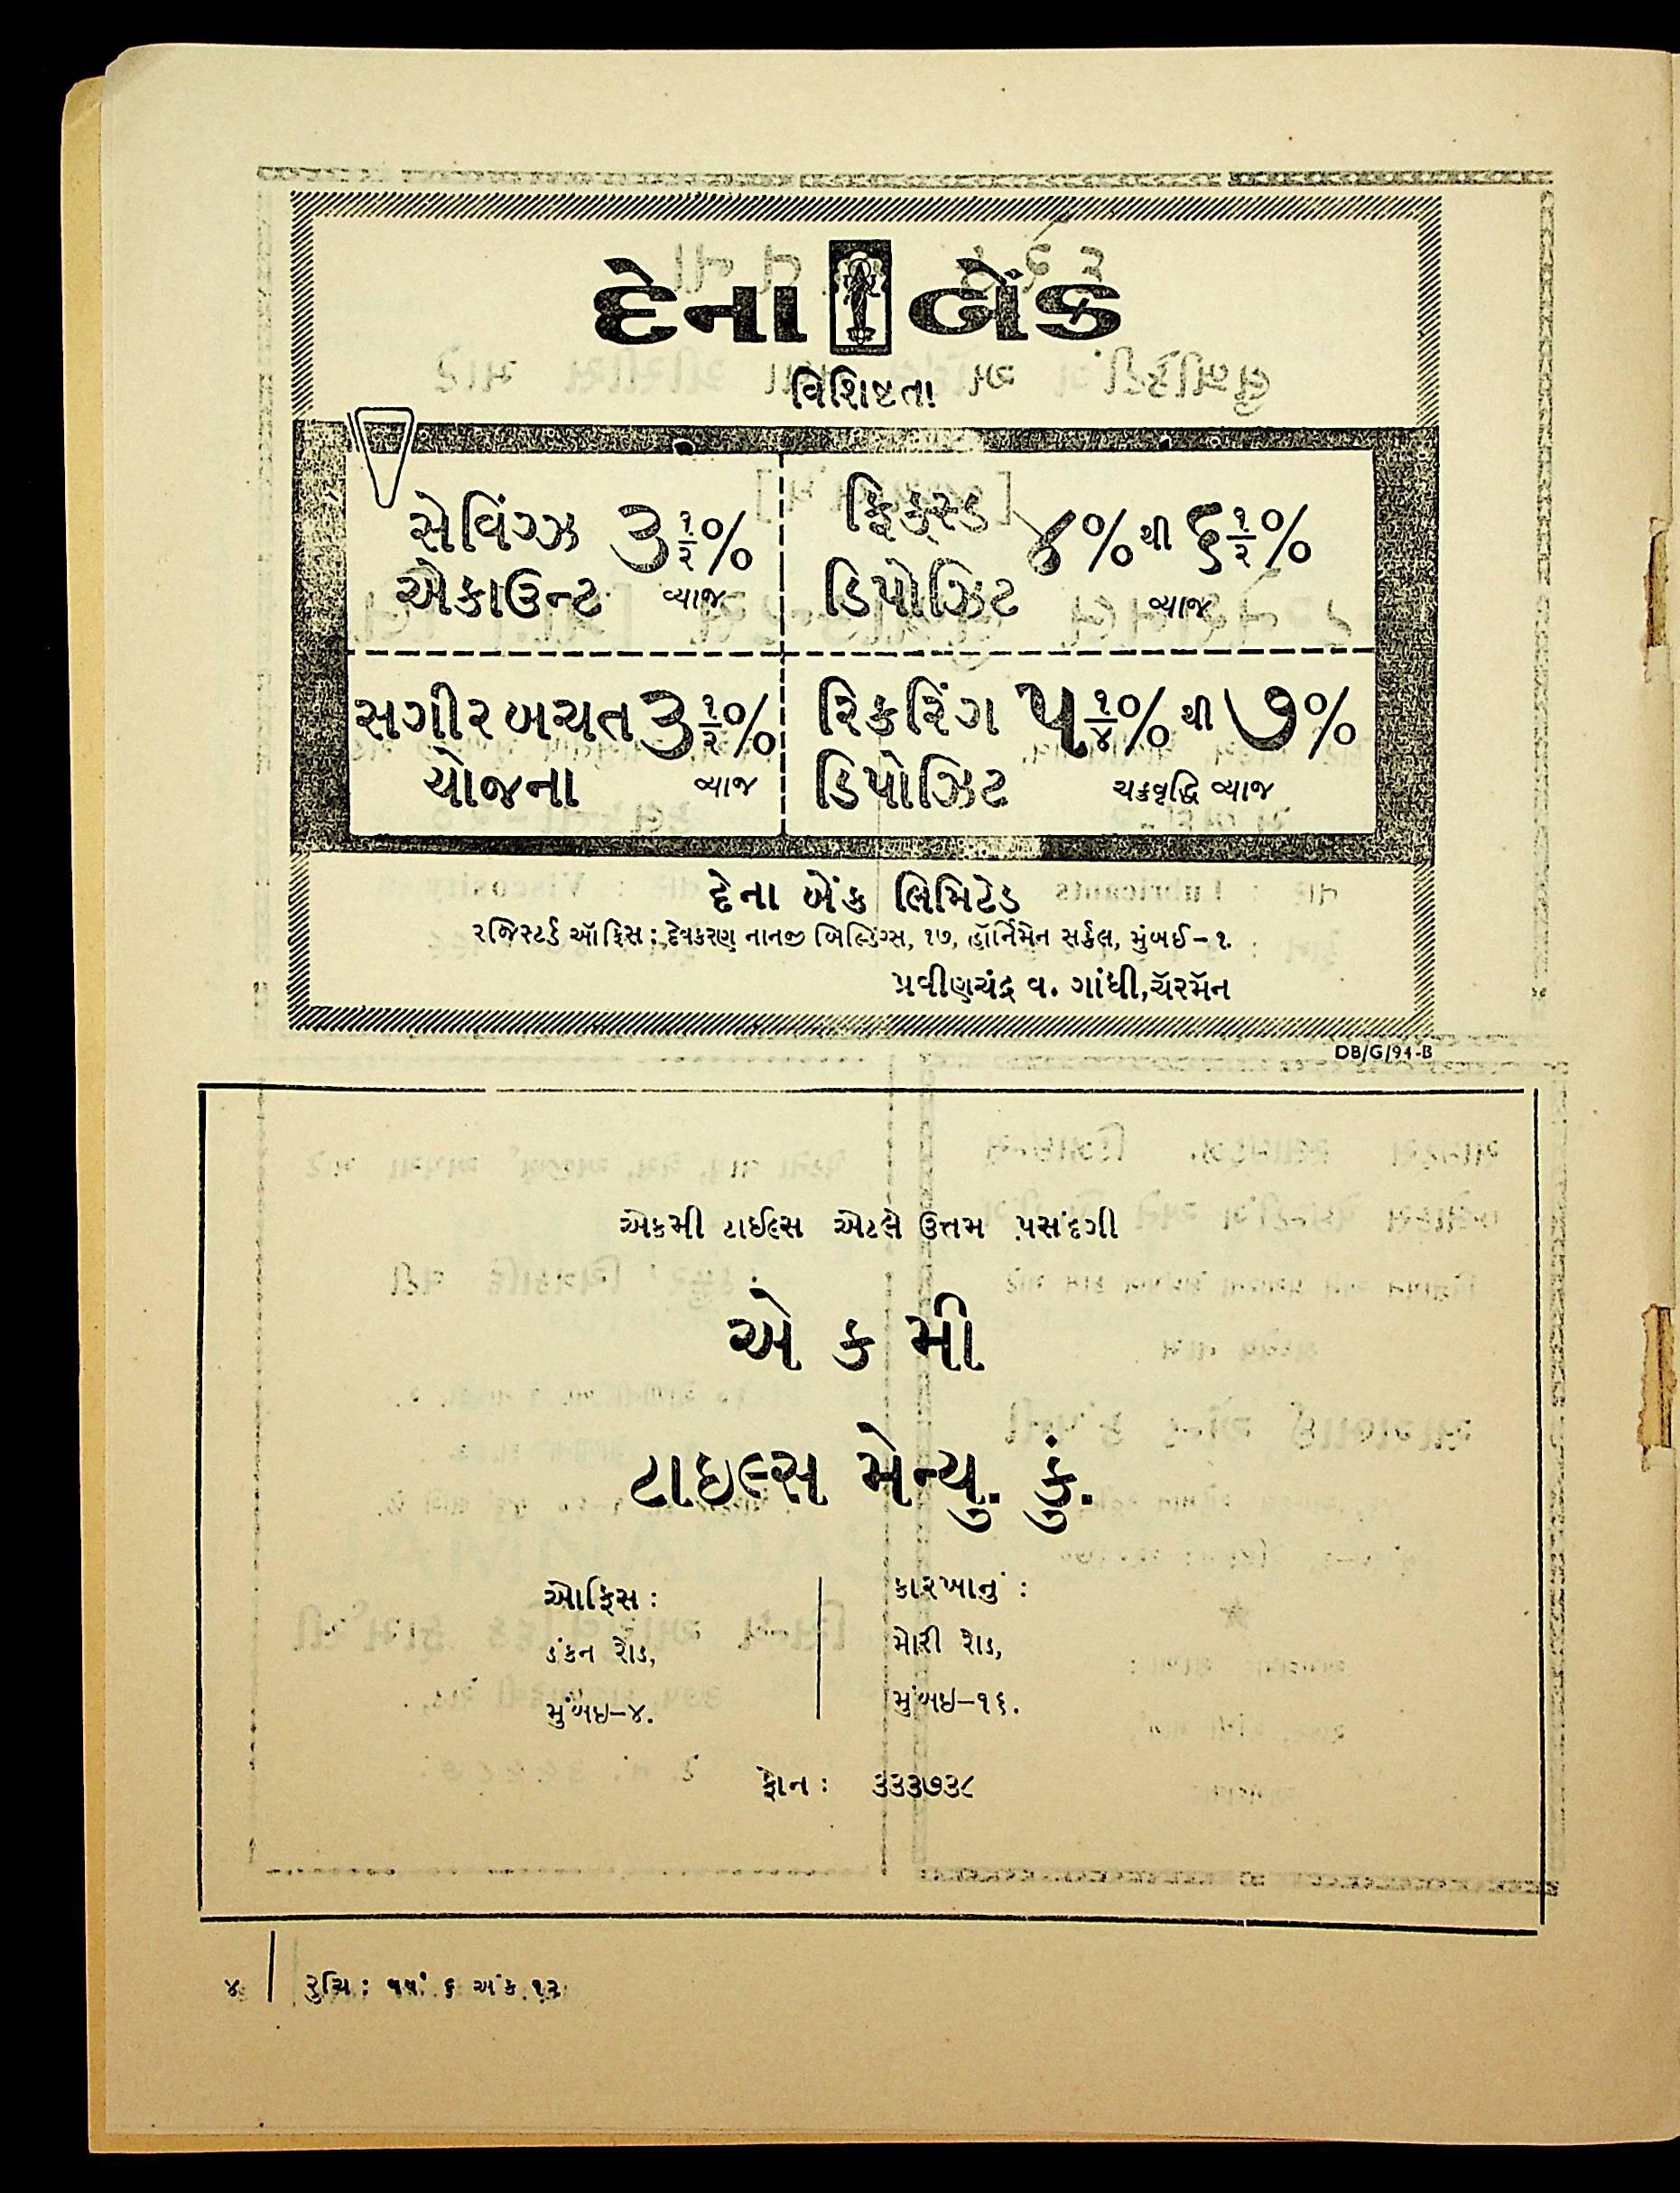 દેના બેંક
વિશિષ્ટતા
સેવિંગ્ઝ ૩ ૧/૨%
એકાઉન્ટ વ્યાજ
ફિક્સ્ડ ૪% થી ૬ ૧/૨%
ડિપોઝિટ વ્યાજ
સગીર બચત ૩ ૧/૨%
યોજના વ્યાજ
રિકરિંગ ૫ ૧/૪% થી ૭%
ડિપોઝિટ ચક્રવૃદ્ધિ વ્યાજ
દેના બેંક લિમિટેડ
રજિસ્ટર્ડ ઑફિસ: દેવકરણ નાનજી બિલ્ડિંગ્સ, ૧૭, હૉર્નિમેન સર્કલ, મુંબઈ-૧.
પ્રવીણચંદ્ર વ. ગાંધી, ચૅરમૅન
DB/G/94-B
એકમી ટાઈલ્સ એટલે ઉત્તમ પસંદગી
એ ક મી
ટાઇલ્સ મેન્યુ. કું.
ઓફિસ :
ડંકન રોડ,
મુંબઇ-૪.
કારખાનું :
મોરી રોડ,
મુંબઇ-૧૬.
ફોન : ૩૩૩૭૩૮
૪ | રુચિ : વર્ષ ૬ અંક ૧૨